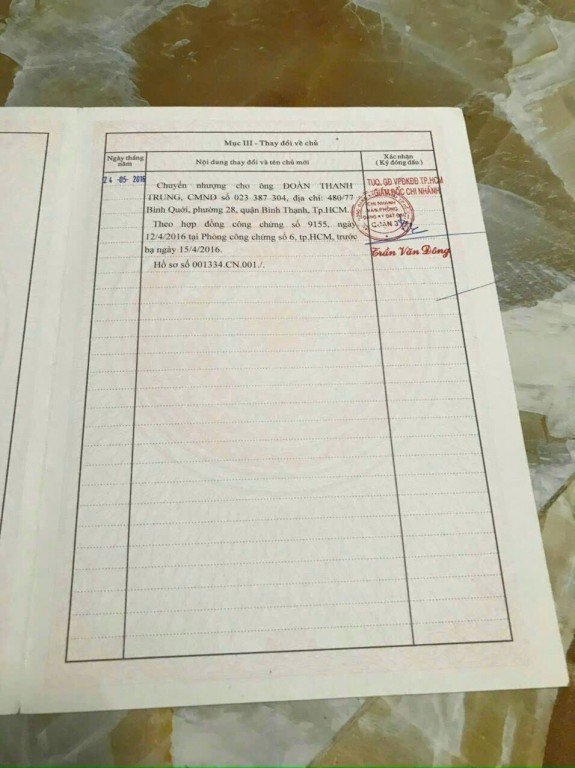 Mục III - Thay đổi về chủ
Ngày tháng năm
Nội dung thay đổi và tên chủ mới
Xác nhận
( Ký đóng dấu )
24 -05- 2016
Chuyển nhượng cho ông ĐOÀN THANH
TRUNG, CMND số 023 387 304, địa chỉ: 480/77
Bình Quới, phường 28, quận Bình Thạnh, Tp.HCM.
Theo hợp đồng công chứng số 9155, ngày
12/4/2016 tại Phòng công chứng số 6, tp.HCM, trước
bạ ngày 15/4/2016.
Hồ sơ số 001334.CN.001./.
TUQ. GĐ VPĐKĐĐ TP.HCM
GIÁM ĐỐC CHI NHÁNH
CHI NHÁNH
VĂN PHÒNG
ĐĂNG KÝ ĐẤT ĐAI
QUẬN
Trần Văn Đông